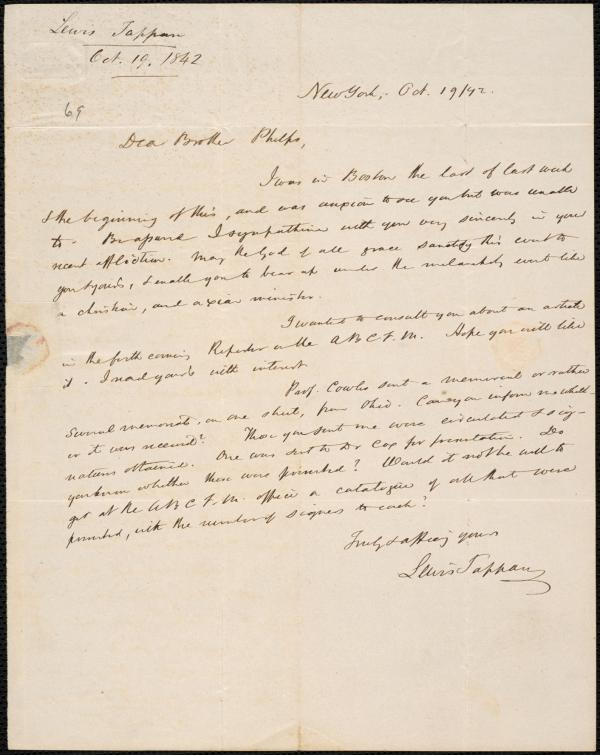 Lewis Tappan
Oct. 19. 1842
69
New York, Oct. 19/42.
Dear Brother Phelps,
I was in Boston the last of last week
& the beginning of this, and was anxious to see you but was unable
to. Be assured I sympathise with you very sincerely in your
recent affliction. May the God of all grace sanctify this event to
you & yours, & enable you to bear up under the melancholy event like
a christian, and a xian minister.
I wanted to consult you about an article
in the forth coming Reporter on the A B C F. M. Hope you will like
it. I read yours with interest.
Prof. Cowles sent a memorial or rather
several memorials, on one sheet, from Ohio. Can you inform me wheth-
er it was received? Those you sent me were circulated & sig-
natures obtained. One was sent to Dr Cox for presentation. Do
you know whether these were presented? Would it not be well to
get at the A B C F. M. office a catalogue of all that were
presented, with the number of signers to each?
Truly & affecy yours
Lewis Tappan